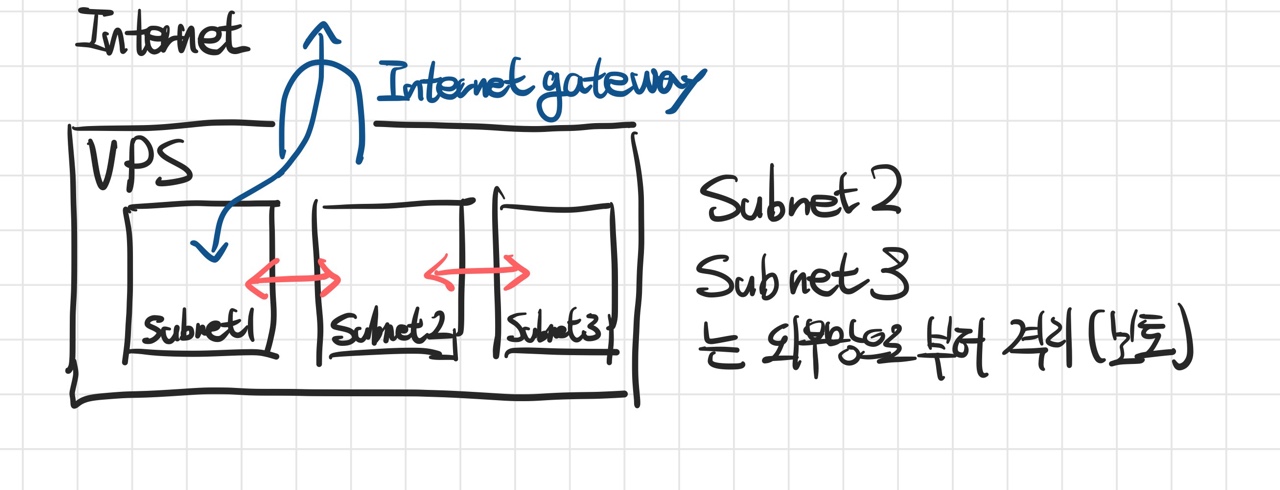 Internet
Internet gateway
VPS
Subnet1
Subnet2
Subnet3
Subnet 2
Subnet 3
는 외부망으로 부터 격리 (보토)